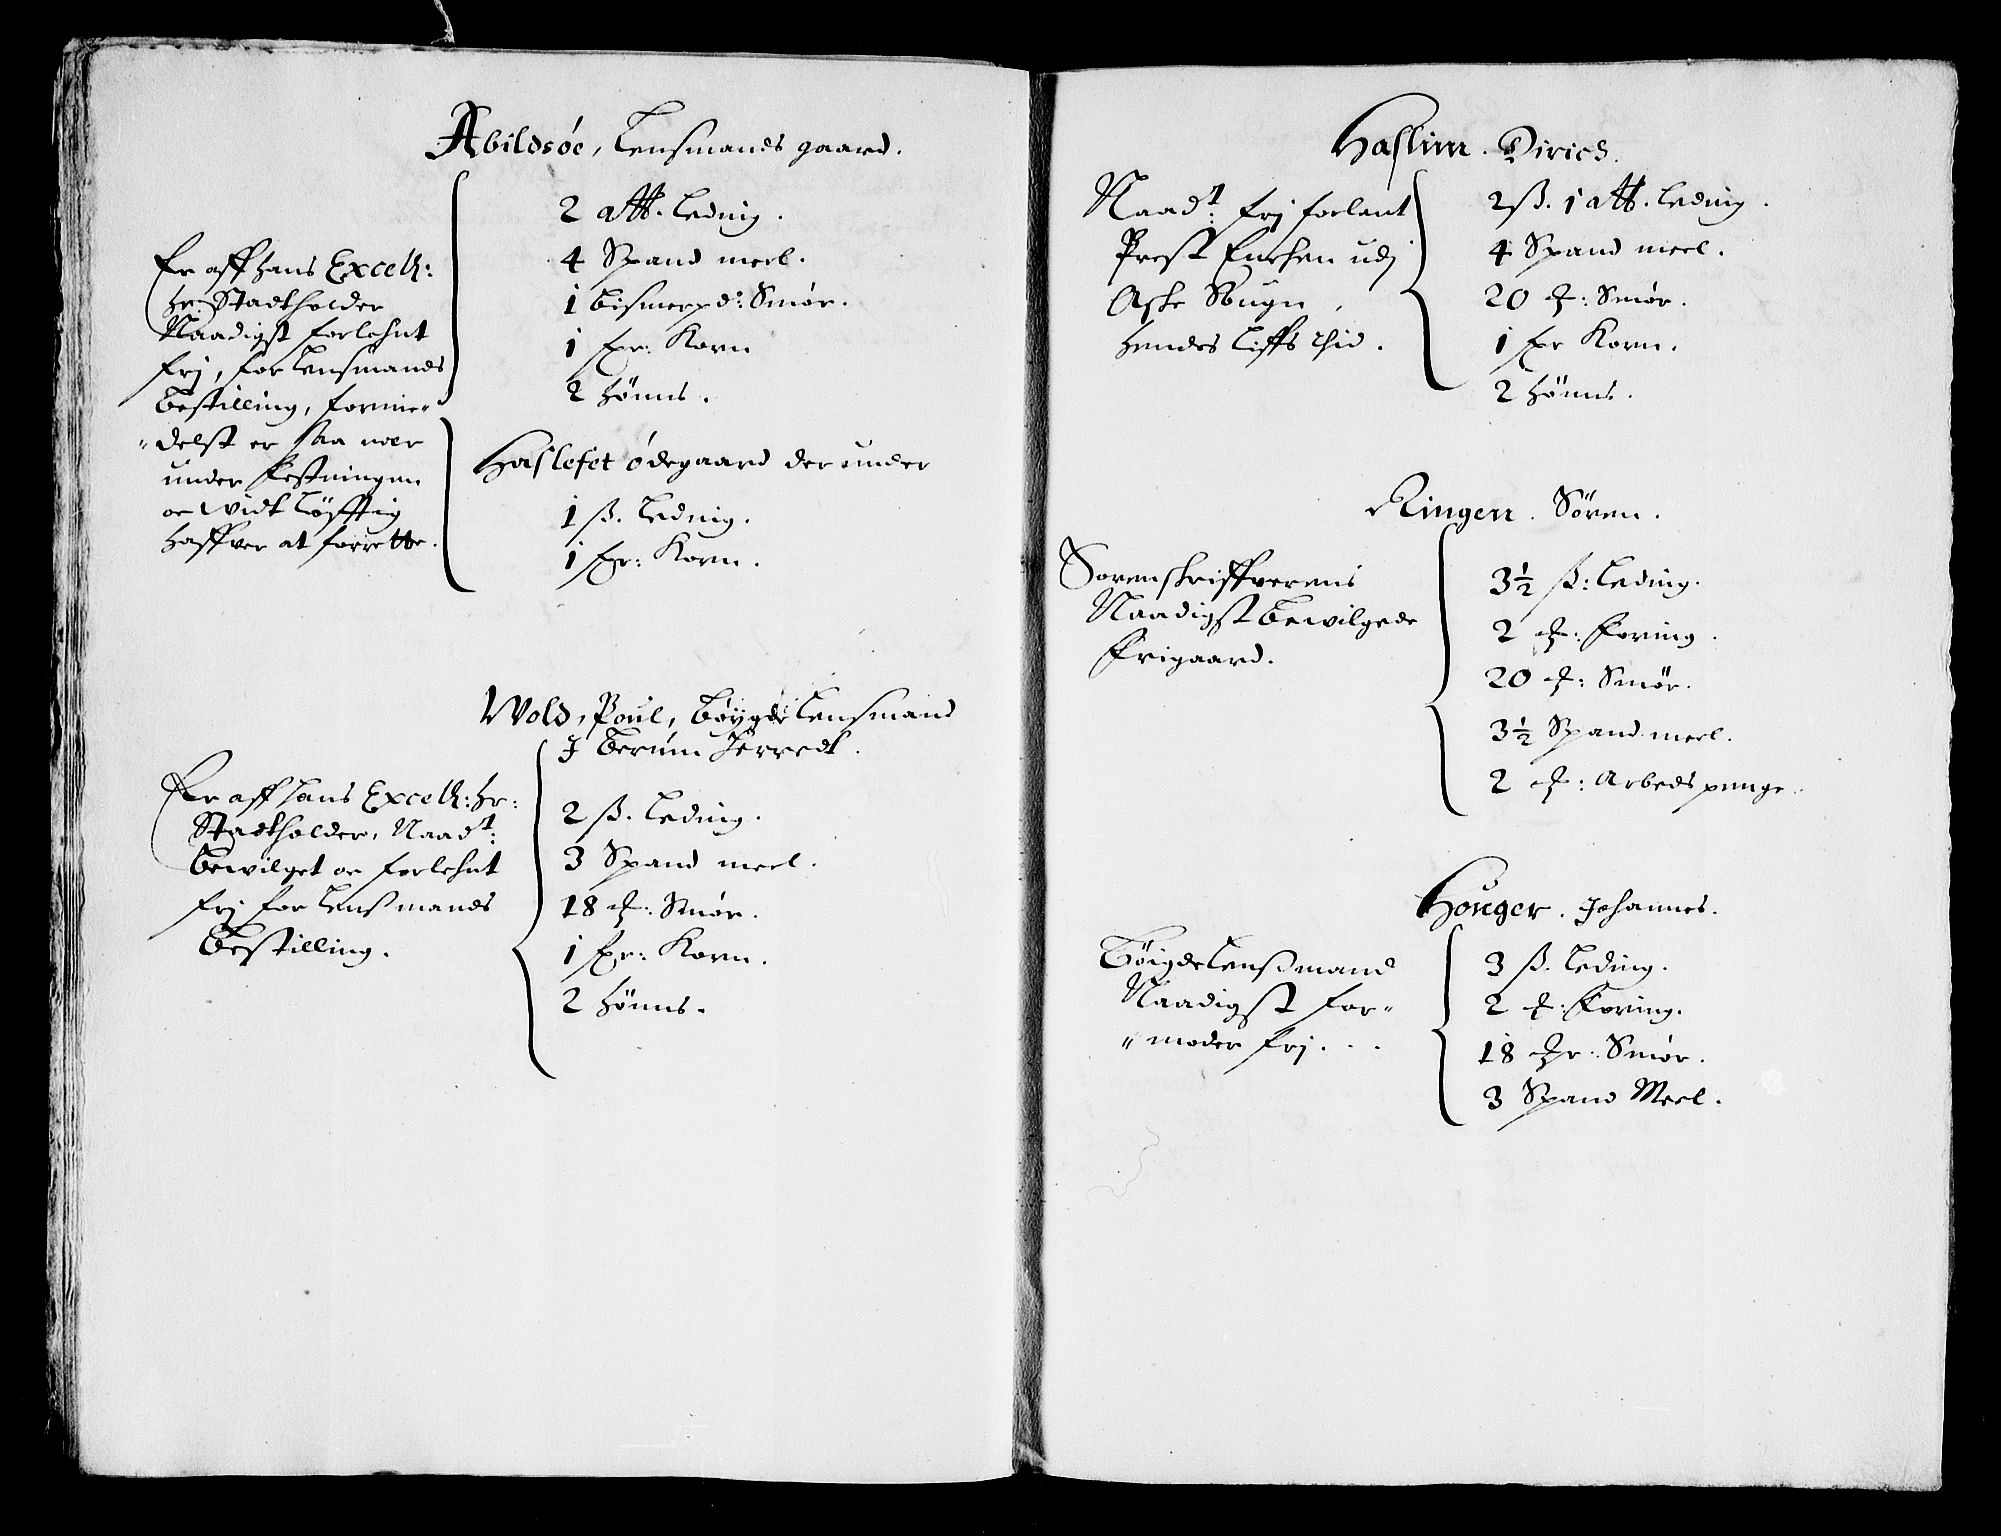 Abildsøe, Lensmands gaard.
Er aff hans Excell:
hr: Stadtholder
Naadigst forlehnt
frj, for Lensmands
bestilling, formie„
„delst er saa nær
under Festningen
oc widt løfftig
haffver at forrette.
2 att. Leding.
4 Spand meel.
1 bismerpd: Smør.
1 fgr: Korn
2 hönns.
Haslefet ödegaard der under
1 ß. Leding.
1 fgr: Korn.
Wold, Poul, bøygde Lensmand
J berum Herredt.
Er aff hans Excell: hr:
Stadtholder, Naadt:
bewilget oc forlehnt
frj for Lenßmands
bestilling.
2 ß. Leding.
3 Spand meel.
18 : Smør.
1 fgr: Korn.
2 hönns.
Haslum. Dirics.
Naadt: frj forlent
Prest Enchen udj
Aske Sougn,
hendes liffs thid.
2 ß. 1 att. Leding.
4 Spand meel.
20 : Smør.
1 fgr Korn.
2 hönns.
Ringerr. Sören.
Sorenskriffverens
Naadigst bewilgede
frigaard.
3½ ß: Leding.
2 : foring.
20 : Smör.
3½ Spand meel.
2 : Arbeds penge.
Houger. Johannes.
Böigde Lenßmand
Naadigst for„
„moder frj...
3 ß. Leding.
2 : foring.
18 : Smør.
3 Spand Meel.